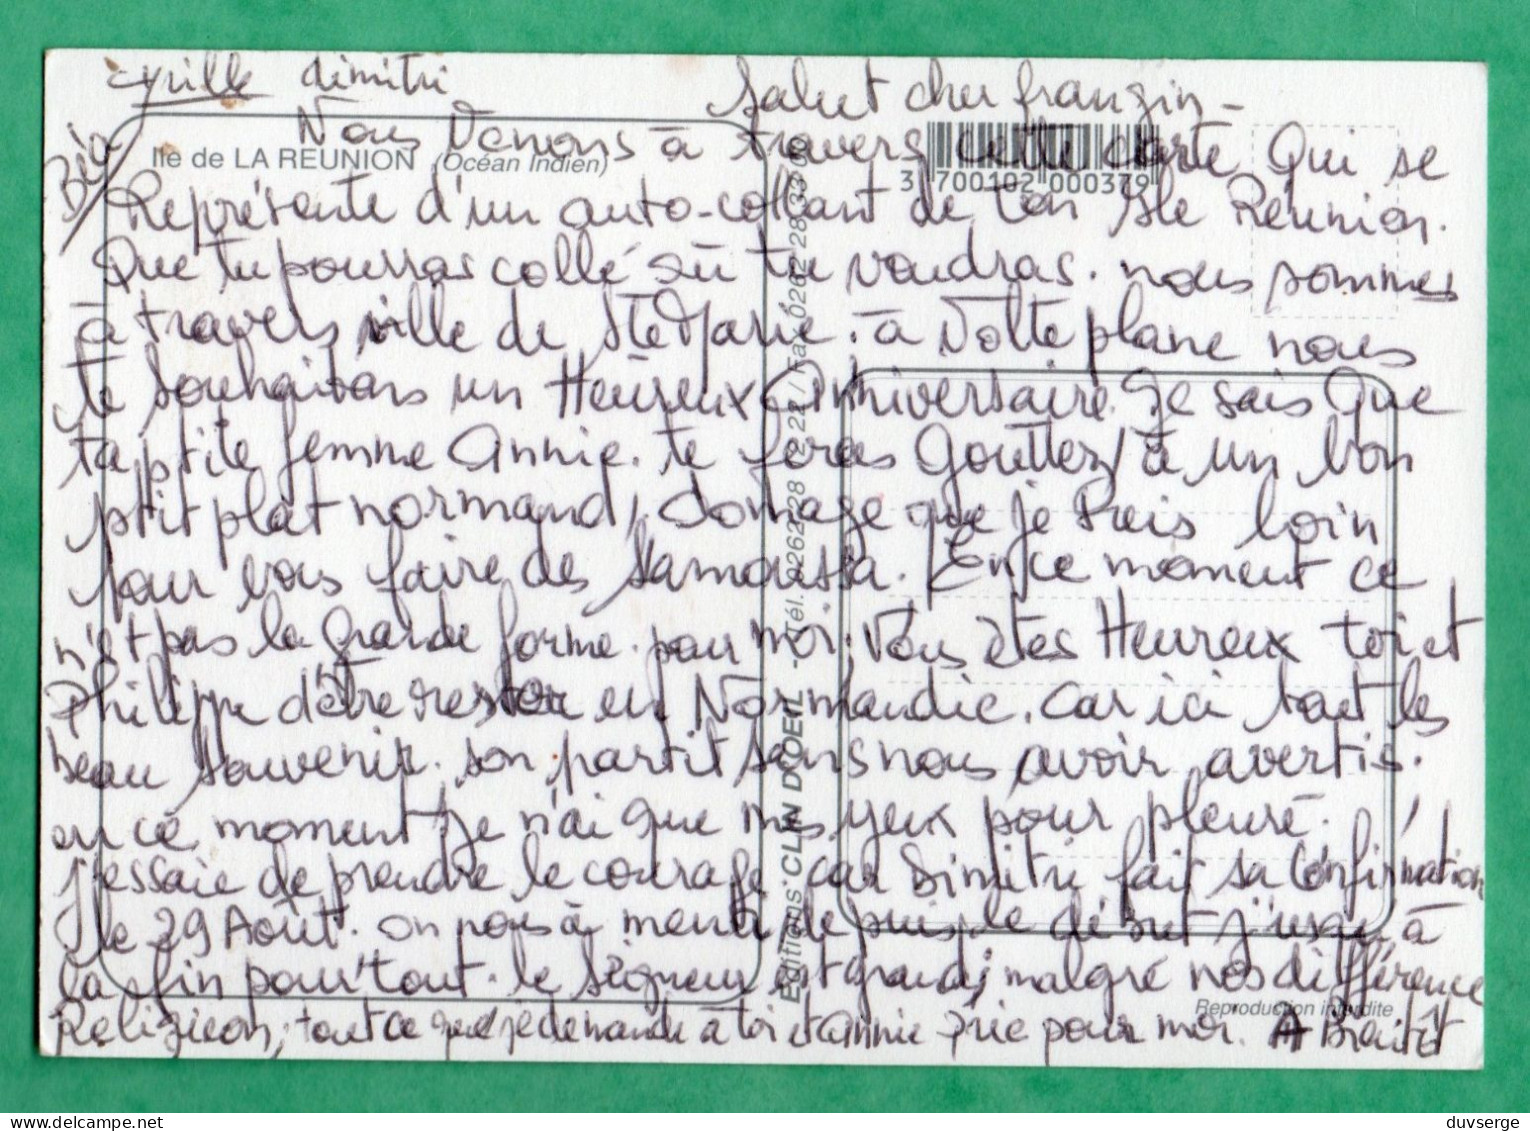 Cyrille Dimitri
Salut cher franzin -
Big
Nous Venons à travers cette carte Qui se
Ile de LA REUNION (Océan Indien)
3 700102 000379
Représente d'un auto-collant de ton Ile Réunion.
Que tu pourras collé où tu voudras. nous sommes
à travers ville de Ste Marie. à Notre plane nous
te souhaitons un Heureux Anniversaire. Je sais Que
ta ptite femme Annie. te feras Gouttez à un bon
ptit plat normand, domage que je suis loin
pour vous faire des Samoussa. En ce moment ce
n'est pas la grande forme. pour moi. Vous êtes Heureux toi et
Philippe d'être rester en Normandie. Car ici tout les
beau souvenir. son partit sans nous avoir avertis.
en ce moment je n'ai que mes yeux pour pleuré.
j'essaie de prendre le courage. car Dimitri fait sa Confirmation
le 29 Août. on nous à menti depuis le début j'usqu'à
la fin pour tout. le Seigneur est grand; malgré nos différence
Religieon; tout ce que je demande à toi et Annie prie pour moi. A Bientôt
Editions CLIN D'OEIL - Tél. 0262 28 22 22 / Fax 0262 28 33 00
Reproduction interdite
duvserge